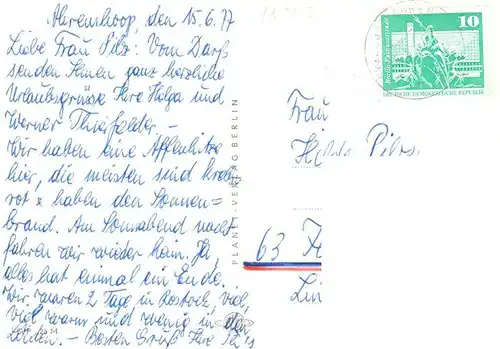 Ahrenshoop, den 15.6.77
Liebe Frau Pilz: Vom Darß
senden Ihnen ganz herzliche
Urlaubsgrüsse Ihre Helga und
Werner Thielfelder. –
Wir haben eine Affenhitze
hier, die meisten sind krebs-
rot & haben den Sonnen-
brand. Am Sonnabend nacht
fahren wir wieder heim. Ja,
alles hat einmal ein Ende.
Wir waren 2 Tage in Rostock, viel,
viel warm und wenig in den
Läden. – Besten Gruß Ihre
PLANET-VERLAG BERLIN
10
DEUTSCHE DEMOKRATISCHE REPUBLIK
Frau
Hilda
63